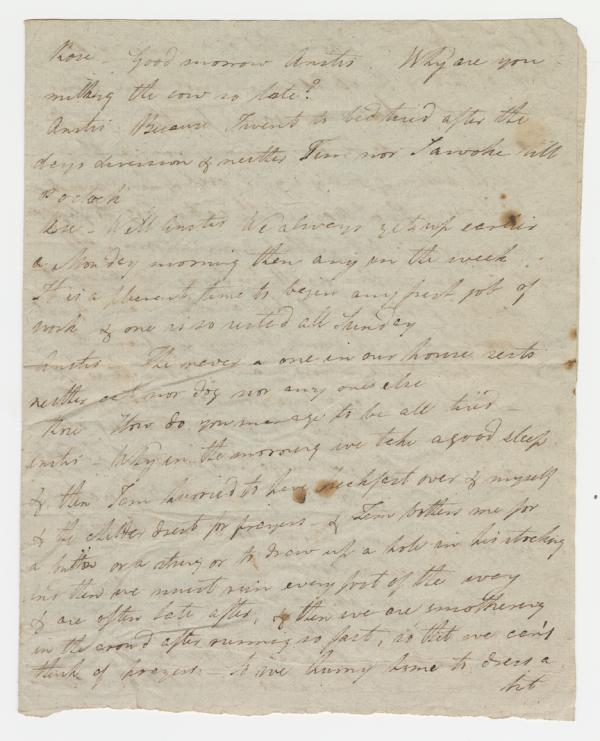 Rose - Good morrow Anstis. Why are you
milking the cow so late?
Anstis Because I went to bed tired after the
days divission & neither Tim nor I awoke till
oclock
Rose - Well Anstis We always get up earlier
a Monday morning then any in the week
It is a pleasent time to begin any fresh job of
work & one is so rested all Sunday
Anstis - The never a one in our house rests
neither cat nor dog nor any one else
Rose How do you manage to be all tired -
Anstis - Why in the morning we take a good sleep
& then I am hurried to have breckfast over & myself
& the childer drest for prayers - & Tim bothers me for
a button or a string or to draw up a hole in his stocking
and then we must run every foot of the way
& are often late after, & then we are smothering
in the crowd after running so fast, so that we can't
think of prayers - & we hurry home to dress a
bit